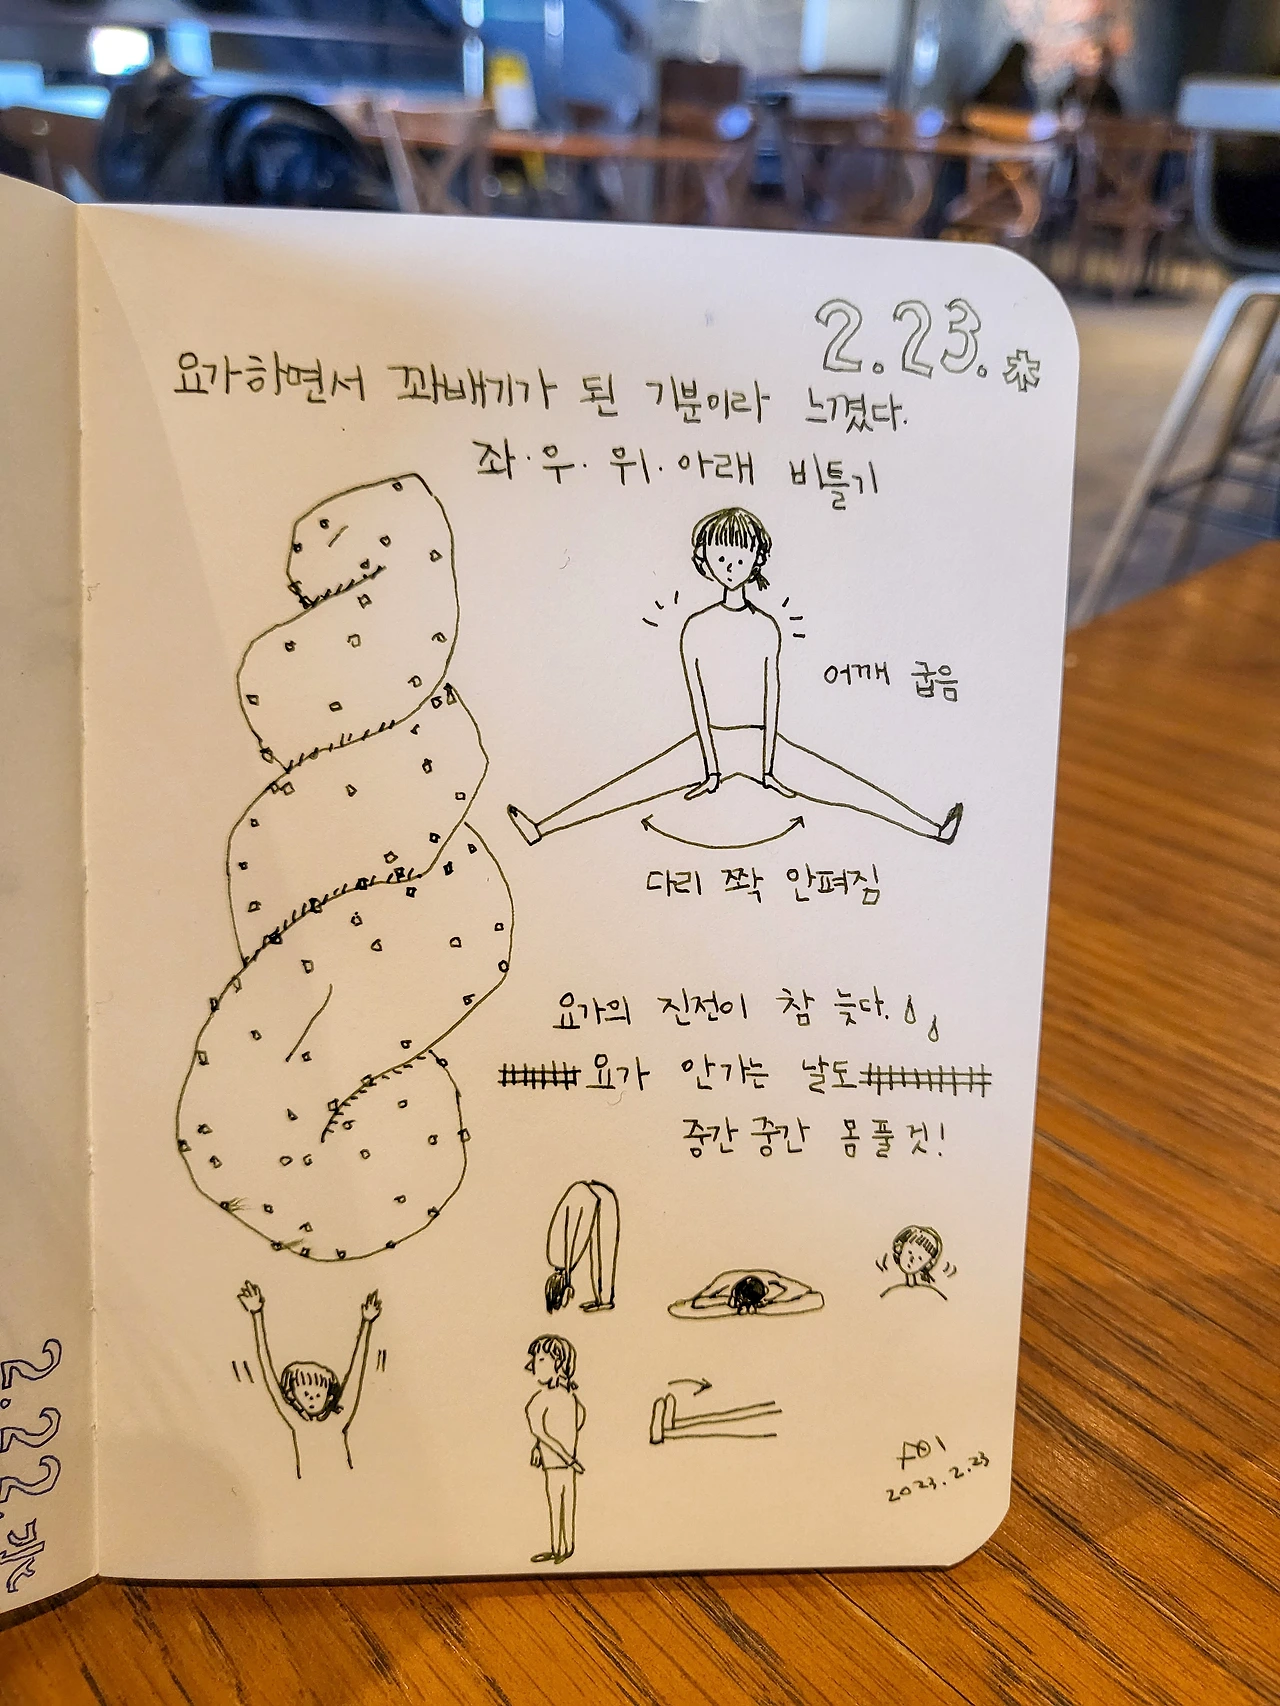 2.23.木
요가하면서 꽈배기가 된 기분이라 느꼈다.
좌·우·위·아래 비틀기
어깨 굽음
다리 쫙 안펴짐
요가의 진전이 참 늦다.
요가 안가는 날도
중간중간 몸풀것!
2023.2.23
2.22.